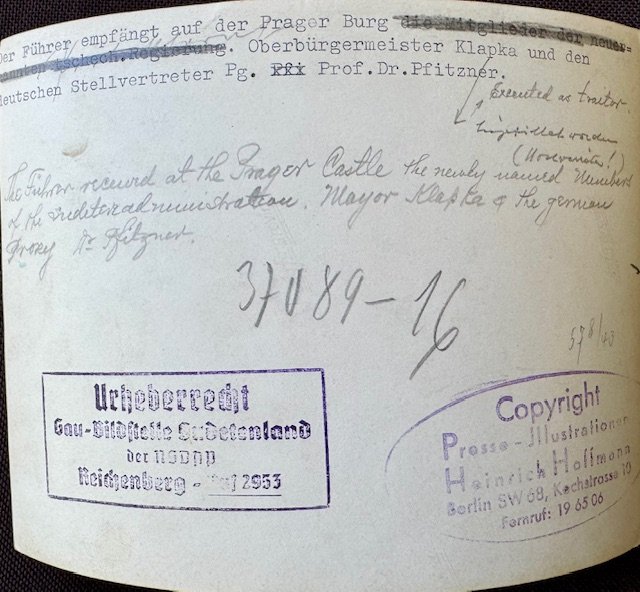 Der Führer empfängt auf der Prager Burg die Mitglieder der neuer=
nannten tschech.Regierung. Oberbürgermeister Klapka und den
deutschen Stellvertreter Pg. Pfi Prof.Dr.Pfitzner.
Executed as traitor.
hingerichtet worden
The Führer received at the Prager Castle the newly named Members
of the administration. Mayor Klapka & the german
Proxy Dr Pfitzner.
37V89-16
578/43
Urheberrecht
Gau-Bildstelle Sudetenland
der NSDAP
Reichenberg - Ruf 2953
Copyright
Presse-Illustrationen
Heinrich Hoffmann
Berlin SW 68, Kochstrasse 10
Fernruf: 19 65 06